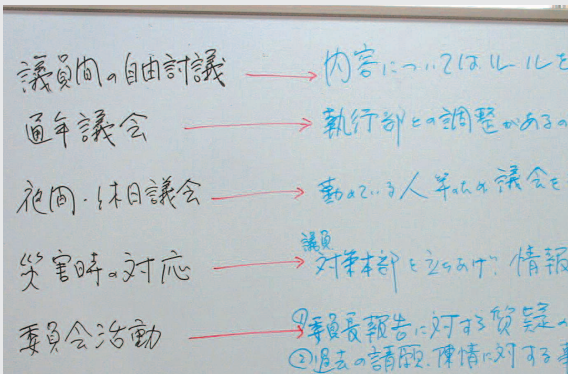 議員間の自由討議 → 内容についてはルールを
通年議会 → 執行部との調整があるの
夜間・休日議会 → 勤めている人 議会を
災害時の対応 → 議員対策本部を立ちあげ? 情報
委員会活動 → ①委員長報告に対する質疑の
②過去の請願、陳情に対する事